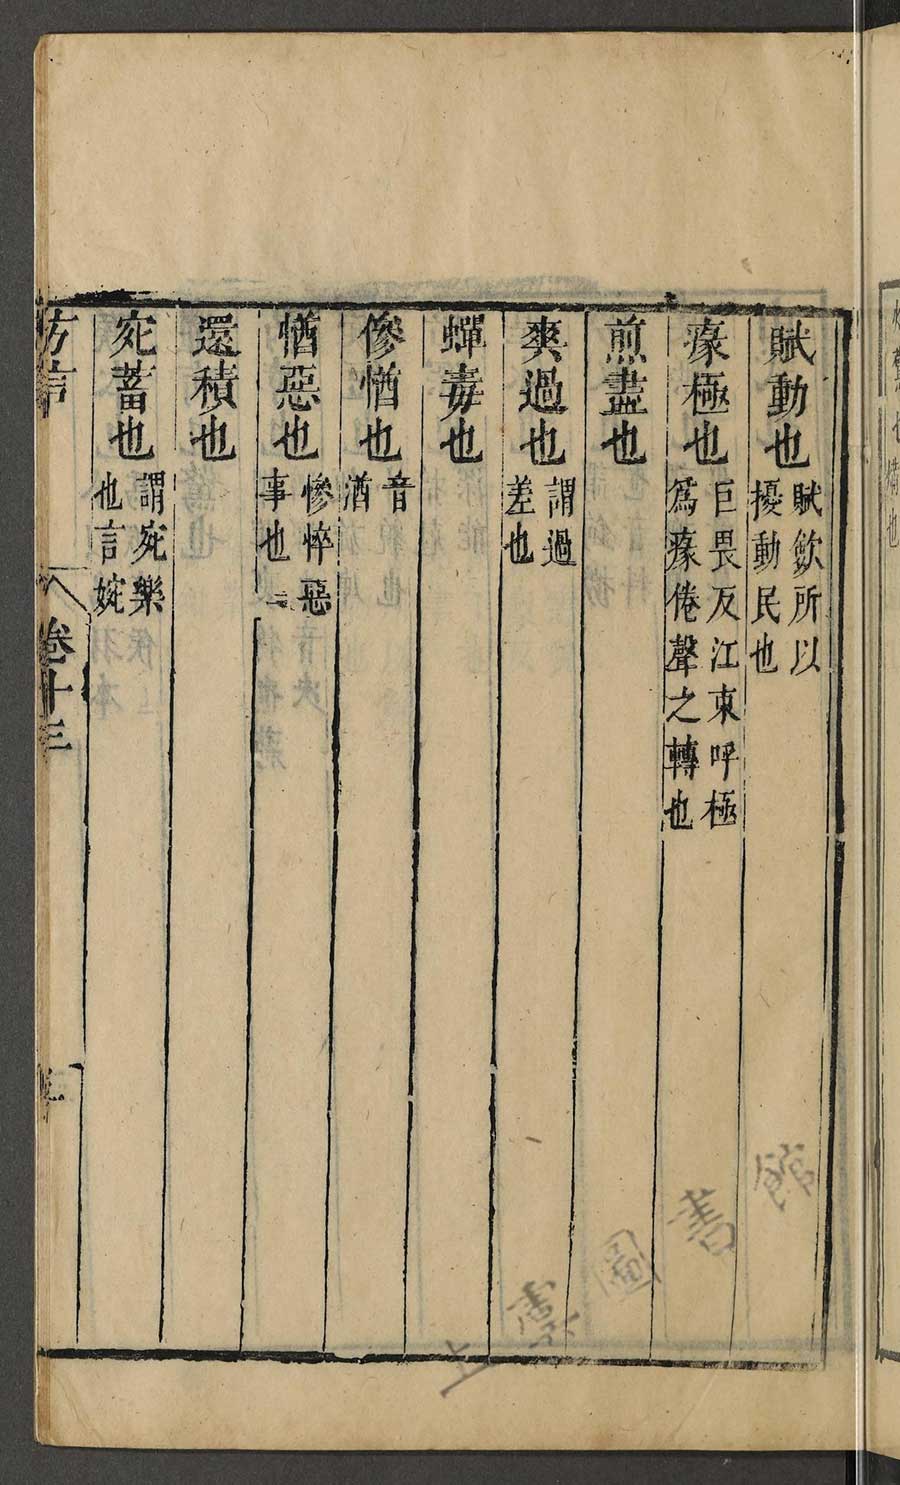 賦動也賦斂所以擾動民也
瘃極也巨畏反江東呼極為瘃倦聲之轉也
煎盡也
爽過也謂過差也
蟬毒也
慘㥢也音酒
㥢惡也慘悴惡事也
還積也
宛蓄也謂宛樂也言婉
方言
卷十三
上海圖書館